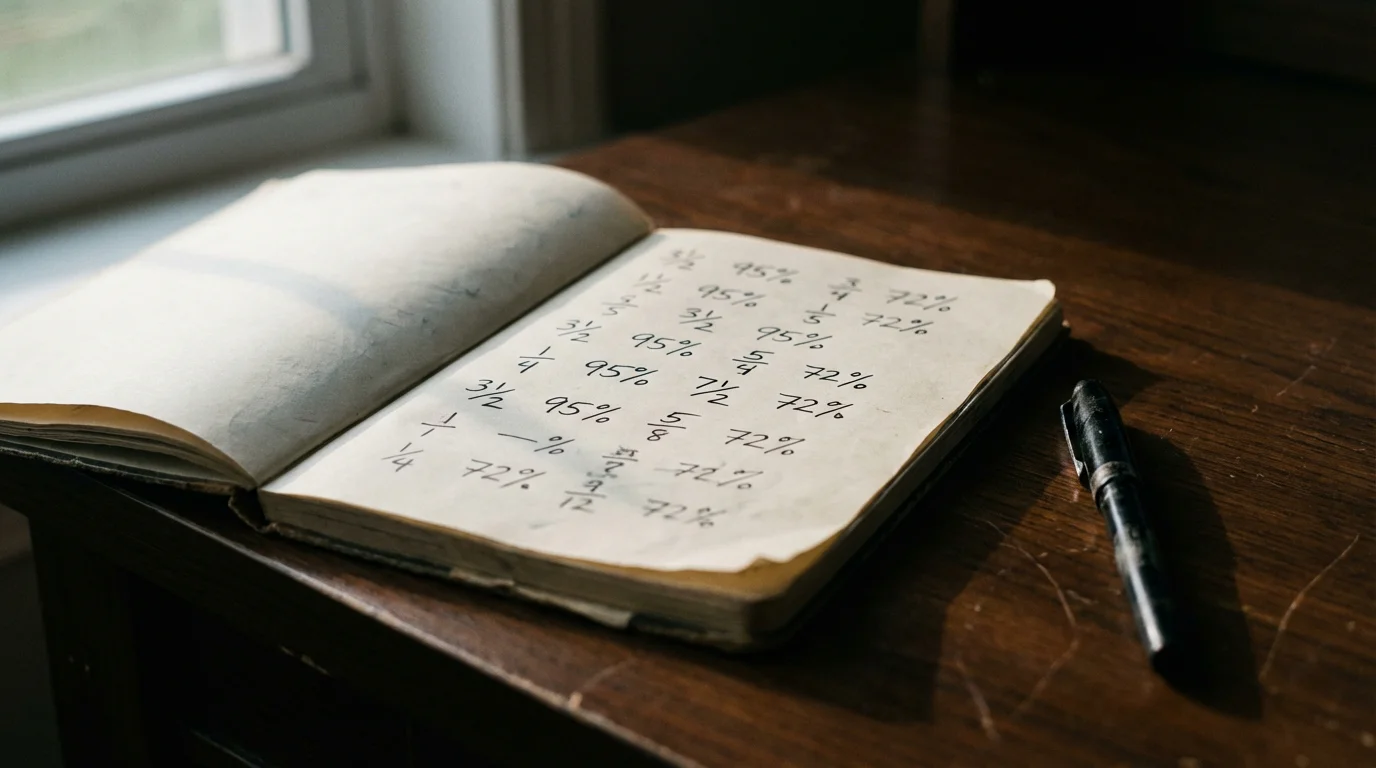 3½ 95% 3/4 72%
½ 95% 1/5 72%
3½ 95%
3½ 95% 5/4 72%
1/4 95% 7½ 72%
3½ 95% 5/8 72%
1/1 —% 72%
¼ 72% 9/12 72%